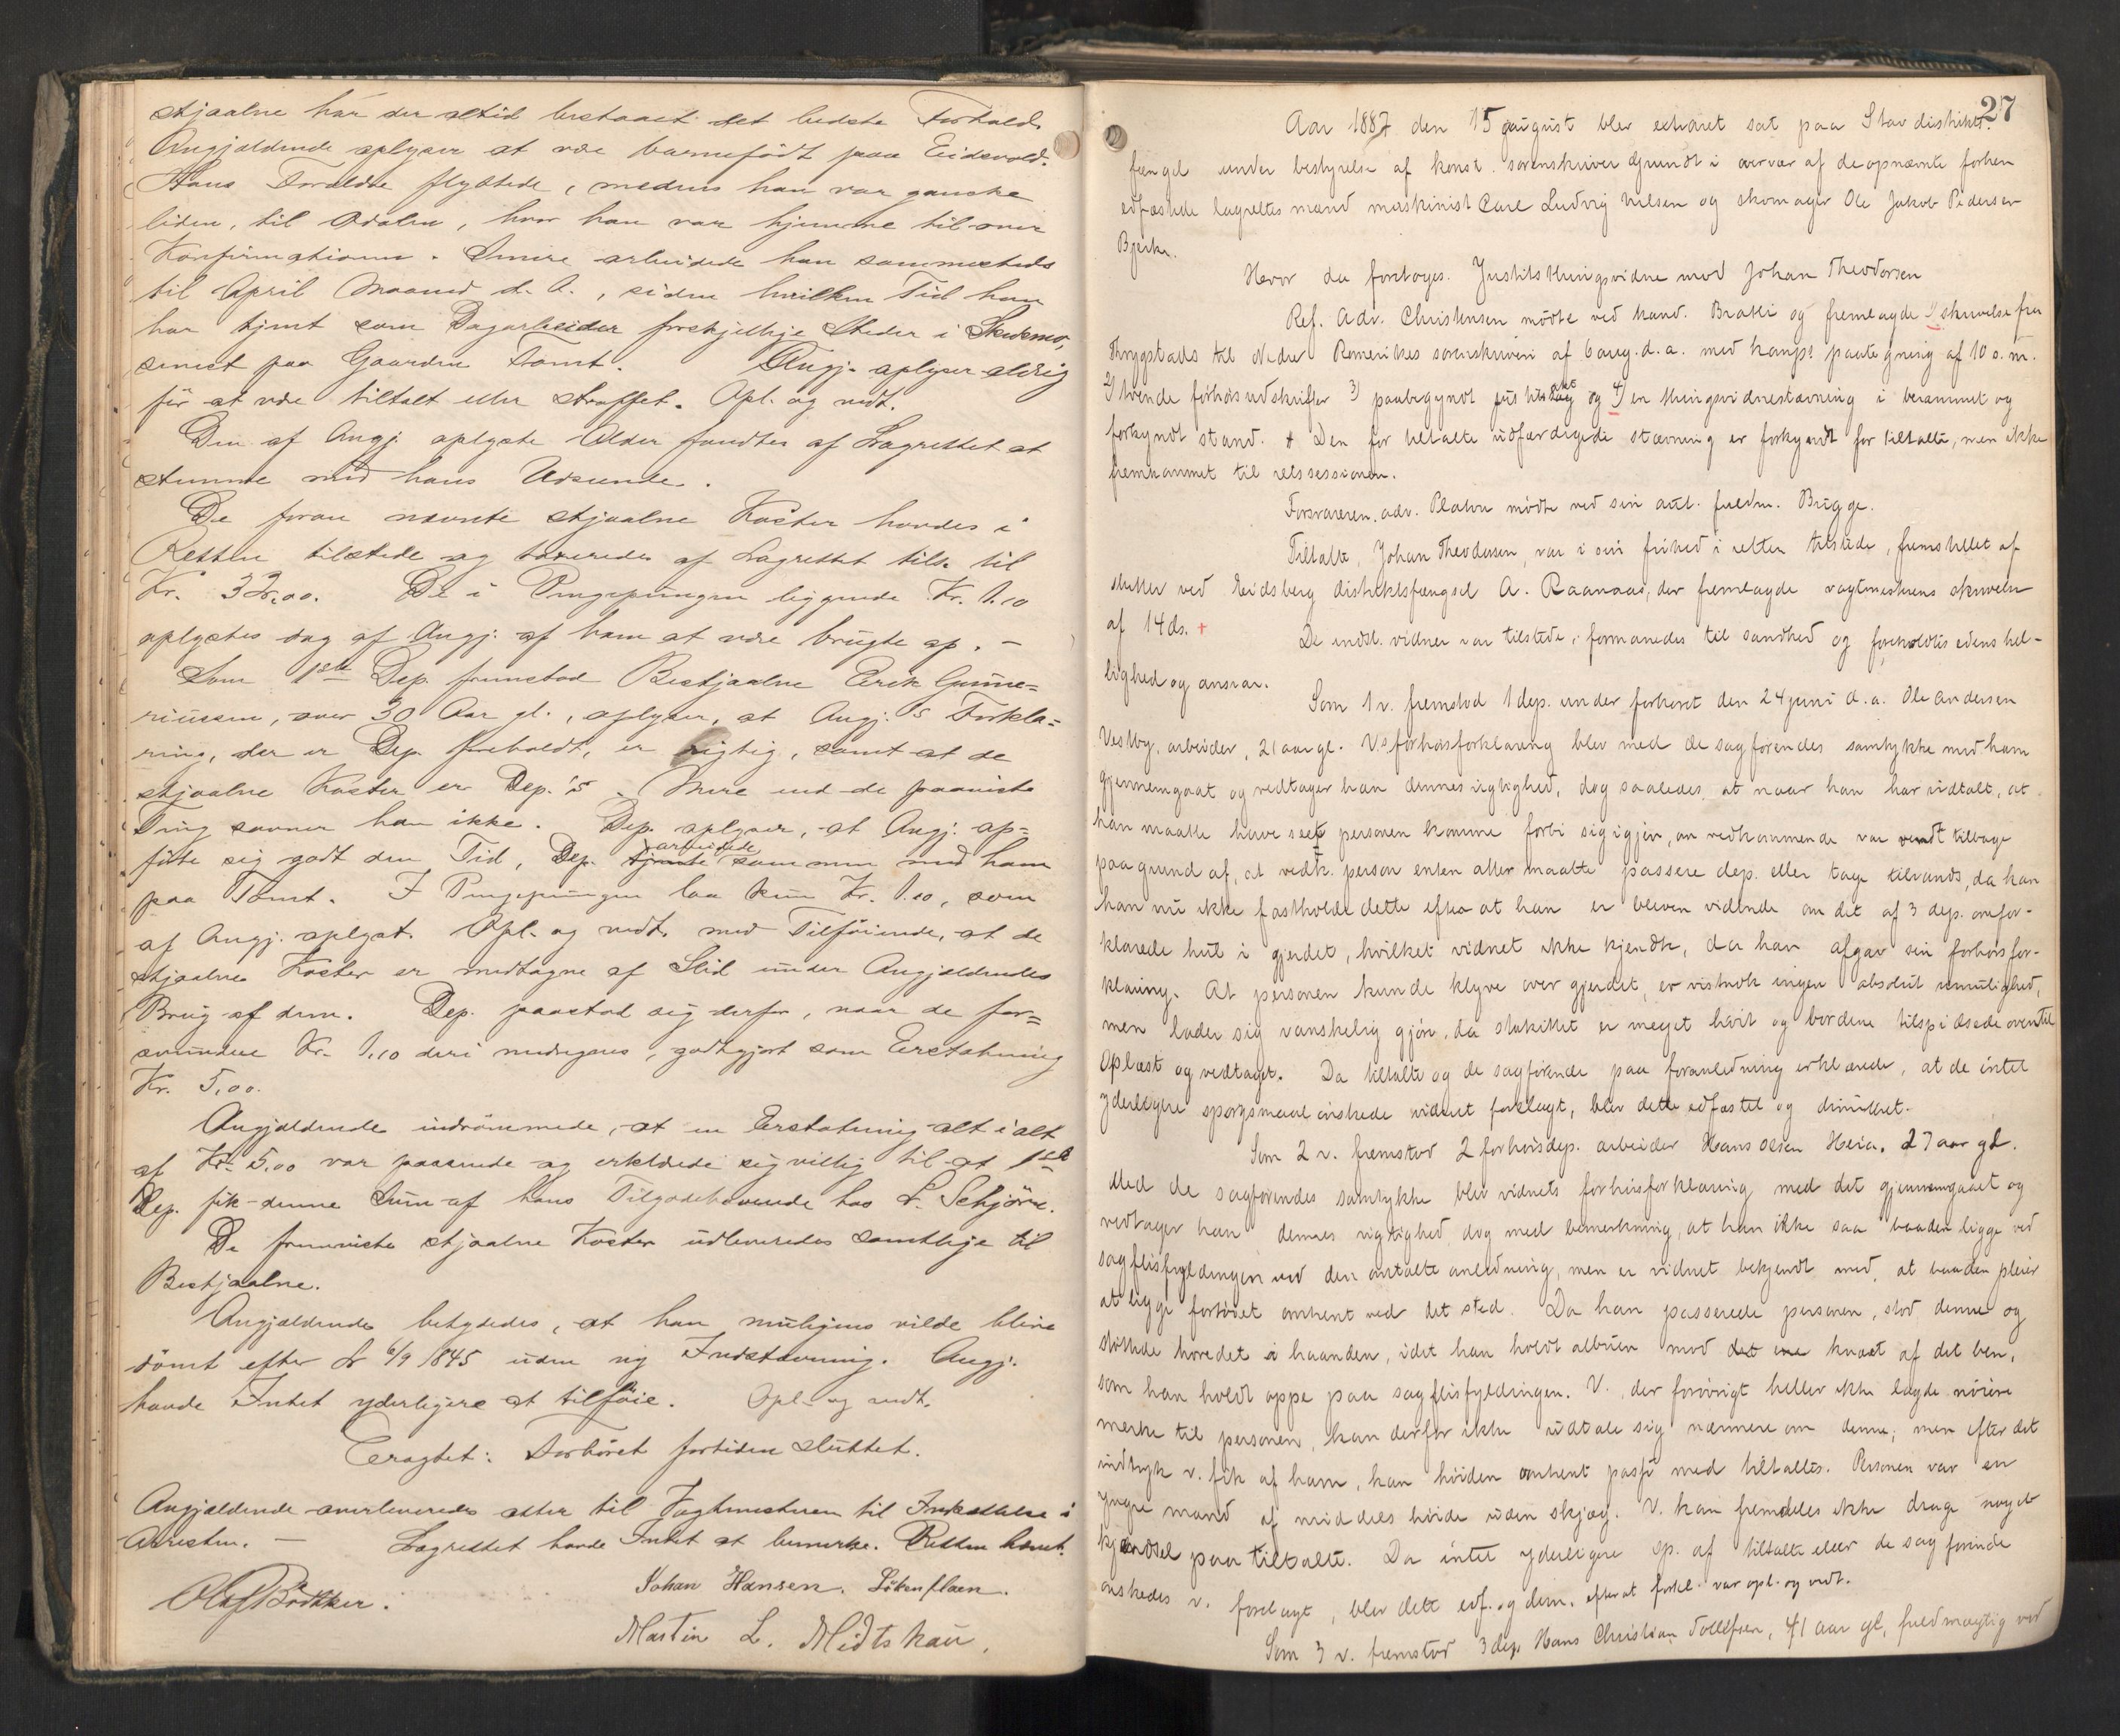 stjaalne har der altid bestaaet det bedste Forhold.
Angjældende oplyser at være barnefødt paa Eidsvold.
Hans Forældre flyttede, medens han var ganske
liden, til Odalen, hvor han var hjemme til over
Konfirmationen. Senere arbeidede han sammesteds
til April Maaned d. A., siden hvilken Tid han
har tjent som Dagarbeider forskjellige Steder i Skedsmo,
senest paa Gaarden Tomt. Angj. oplyser aldrig
før at være tiltalt eller straffet. Opl. og vedt.
Den af Angj. oplyste Alder fandtes af Lagrettet at
stemme med hans Udseende.
De foran nævnte stjaalne Koster havdes i
Retten tilstede og taxeredes af Lagrettet tils. til
Kr. 32,00. De i Pengepungen liggende Kr. 1.10
oplystes dog af Angj. af ham at være brugte op. –
Som 1ste Dep. fremstod Bestjaalne Erik Gunne=
riussen, over 30 Aar gl., oplyser, at Angj.'s Forkla=
ring, der er Dep. foreholdt, er rigtig, samt at de
stjaalne Koster er Dep.'s. Mere end de paaviste
Ting savner han ikke. Dep. oplyser, at Angj. op=
førte sig godt den Tid, Dep. tjente arbeidede sammen med ham
paa Tomt. I Pengepungen laa kun Kr. 1.10, som
af Angj. oplyst. Opl. og vedt. med Tilføiende, at de
stjaalne Koster er medtagne af Slid under Angjældendes
Brug af dem. Dep. paastod sig derfor, naar de for=
svundne Kr. 1,10 deri medregnes, godtgjort som Erstatning
Kr. 5,00.
Angjældende indrømmede, at en Erstatning alt i alt
af Kr. 5,00 var passende og erklærede sig villig til at 1ste
Dep. fik denne Sum af hans Tilgodehavende hos L. Schjøren.
De fremviste stjaalne Koster udleveredes samtlige til
Bestjaalne.
Angjældende betydedes, at han muligens vilde blive
dømt efter Lr 6/9 1845 uden ny Indstævning. Angj.
havde Intet yderligere at tilføie. Opl. og vedt.
Eragtet: Forhøret fortiden sluttet.
Angjældende overleveredes atter til Vagtmesteren til Indsættelse i
Arresten. – Lagrettet havde Intet at bemærke. Retten hævet.
Johan Hansen. Løkenflaen.
Martin L. Midtskau.
27
Aar 1887 den 15 august blev extraret sat paa Stav distrikts-
fængsel under bestyrelse af konst. sorenskriver Grundt i overvær af de opnævnte forhen
edfæstede lagrettesmænd maskinist Carl Ludvig Nilsen og skomager Ole Jakob Pedersen
Bjerke.
Hvor da foretoges. Justitsthingsvidne mod Johan Theodorsen
Ref. adv. Christensen mødte ved kand. Bratli og fremlagde 1) skrivelse fra
Thrygstads til Nedre Romerikes sorenskriveri af 6 aug. d. a. med hansps paategning af 10 s. m.
2) tvende forhørsudskrifter 3) paabegyndt justitsakt og 4) en thingsvidnestævning i berammet og
forkyndt stand. Den for tiltalte udfærdigede stævning er forkyndt for tiltalte, men ikke
fremkommet til retssessionen.
Forsvareren, adv. Platou mødte ved sin aut. fuldm. Brügge.
Tiltalte, Johan Theodorsen, var i sin frihed i retten tilstede, fremstillet af
slutter ved Eidsberg distriktsfængsel A. Raanaas, der fremlagde vagtmesterens skrivelse
af 14 ds. +
De indst. vidner var tilstede, formanedes til sandhed og foreholdtes edens hel-
lighed og ansvar.
Som 1 v. fremstod 1 dep. under forhøret den 24 juni d. a. Ole Andersen
Vestby, arbeider, 21 aar gl. V.'s forhørsforklaring blev med de sagførendes samtykke med ham
gjennemgaaet og vedtager han dennes rigtighed, dog saaledes, at naar han har udtalt, at
han maatte have seet personen komme forbi sig igjen, om vedkommende var vendt tilbage
paa grund af, at vedk. person enten atter maatte passere dep. eller tage tilvands, da kan
han nu ikke fastholde dette efter at han er bleven vidende om det af 3 dep. omfor-
klarede hul i gjerdet, hvilket vidnet ikke kjendte, da han afgav sin forhørsfor-
klaring. At personen kunde klyve over gjerdet, er vistnok ingen absolut umulighed,
men lader sig vanskelig gjøre, da stakittet er meget høit og bordene tilspidsede oventil.
Oplæst og vedtaget. Da tiltalte og de sagførende paa foranledning erklærede, at de intet
yderligere spørgsmaal ønskede vidnet forelagt, blev dette edfæstet og dimitteret.
Som 2 v. fremstod 2 forhørsdep. arbeider Hans Olsen Heia, 27 aar gl.
Med de sagførendes samtykke blev vidnets forhørsforklaring med det gjennemgaaet og
vedtager han dennes rigtighed, dog med bemerkning, at han ikke saa baaden ligge ved
sagflisfyldingen ved den omtalte anledning, men er vidnet bekjendt med, at baaden pleier
at ligge fortøiet omtrent ved det sted. Da han passerede personen, stod denne og
støttede hovedet i haanden, idet han holdt albuen mod det ene knæet af det ben,
som han holdt oppe paa sagflisfyldingen. V., der forøvrigt heller ikke lagde nøiere
merke til personen, kan derfor ikke udtale sig nærmere om denne; men efter det
indtryk v. fik af ham, kan høiden omtrent passe med tiltaltes. Personen var en
yngre mand af middels høide uden skjæg. V. kan fremdeles ikke drage noget
kjendsel paa tiltalte. Da intet yderligere sp. af tiltalte eller de sagførende
ønskedes v. forelagt, blev dette edf. og dim. efterat forkl. var opl. og vedt.
Som 3 v. fremstod 3 dep. Hans Christian Tollefsen, 41 aar gl, fuldmægtig ved